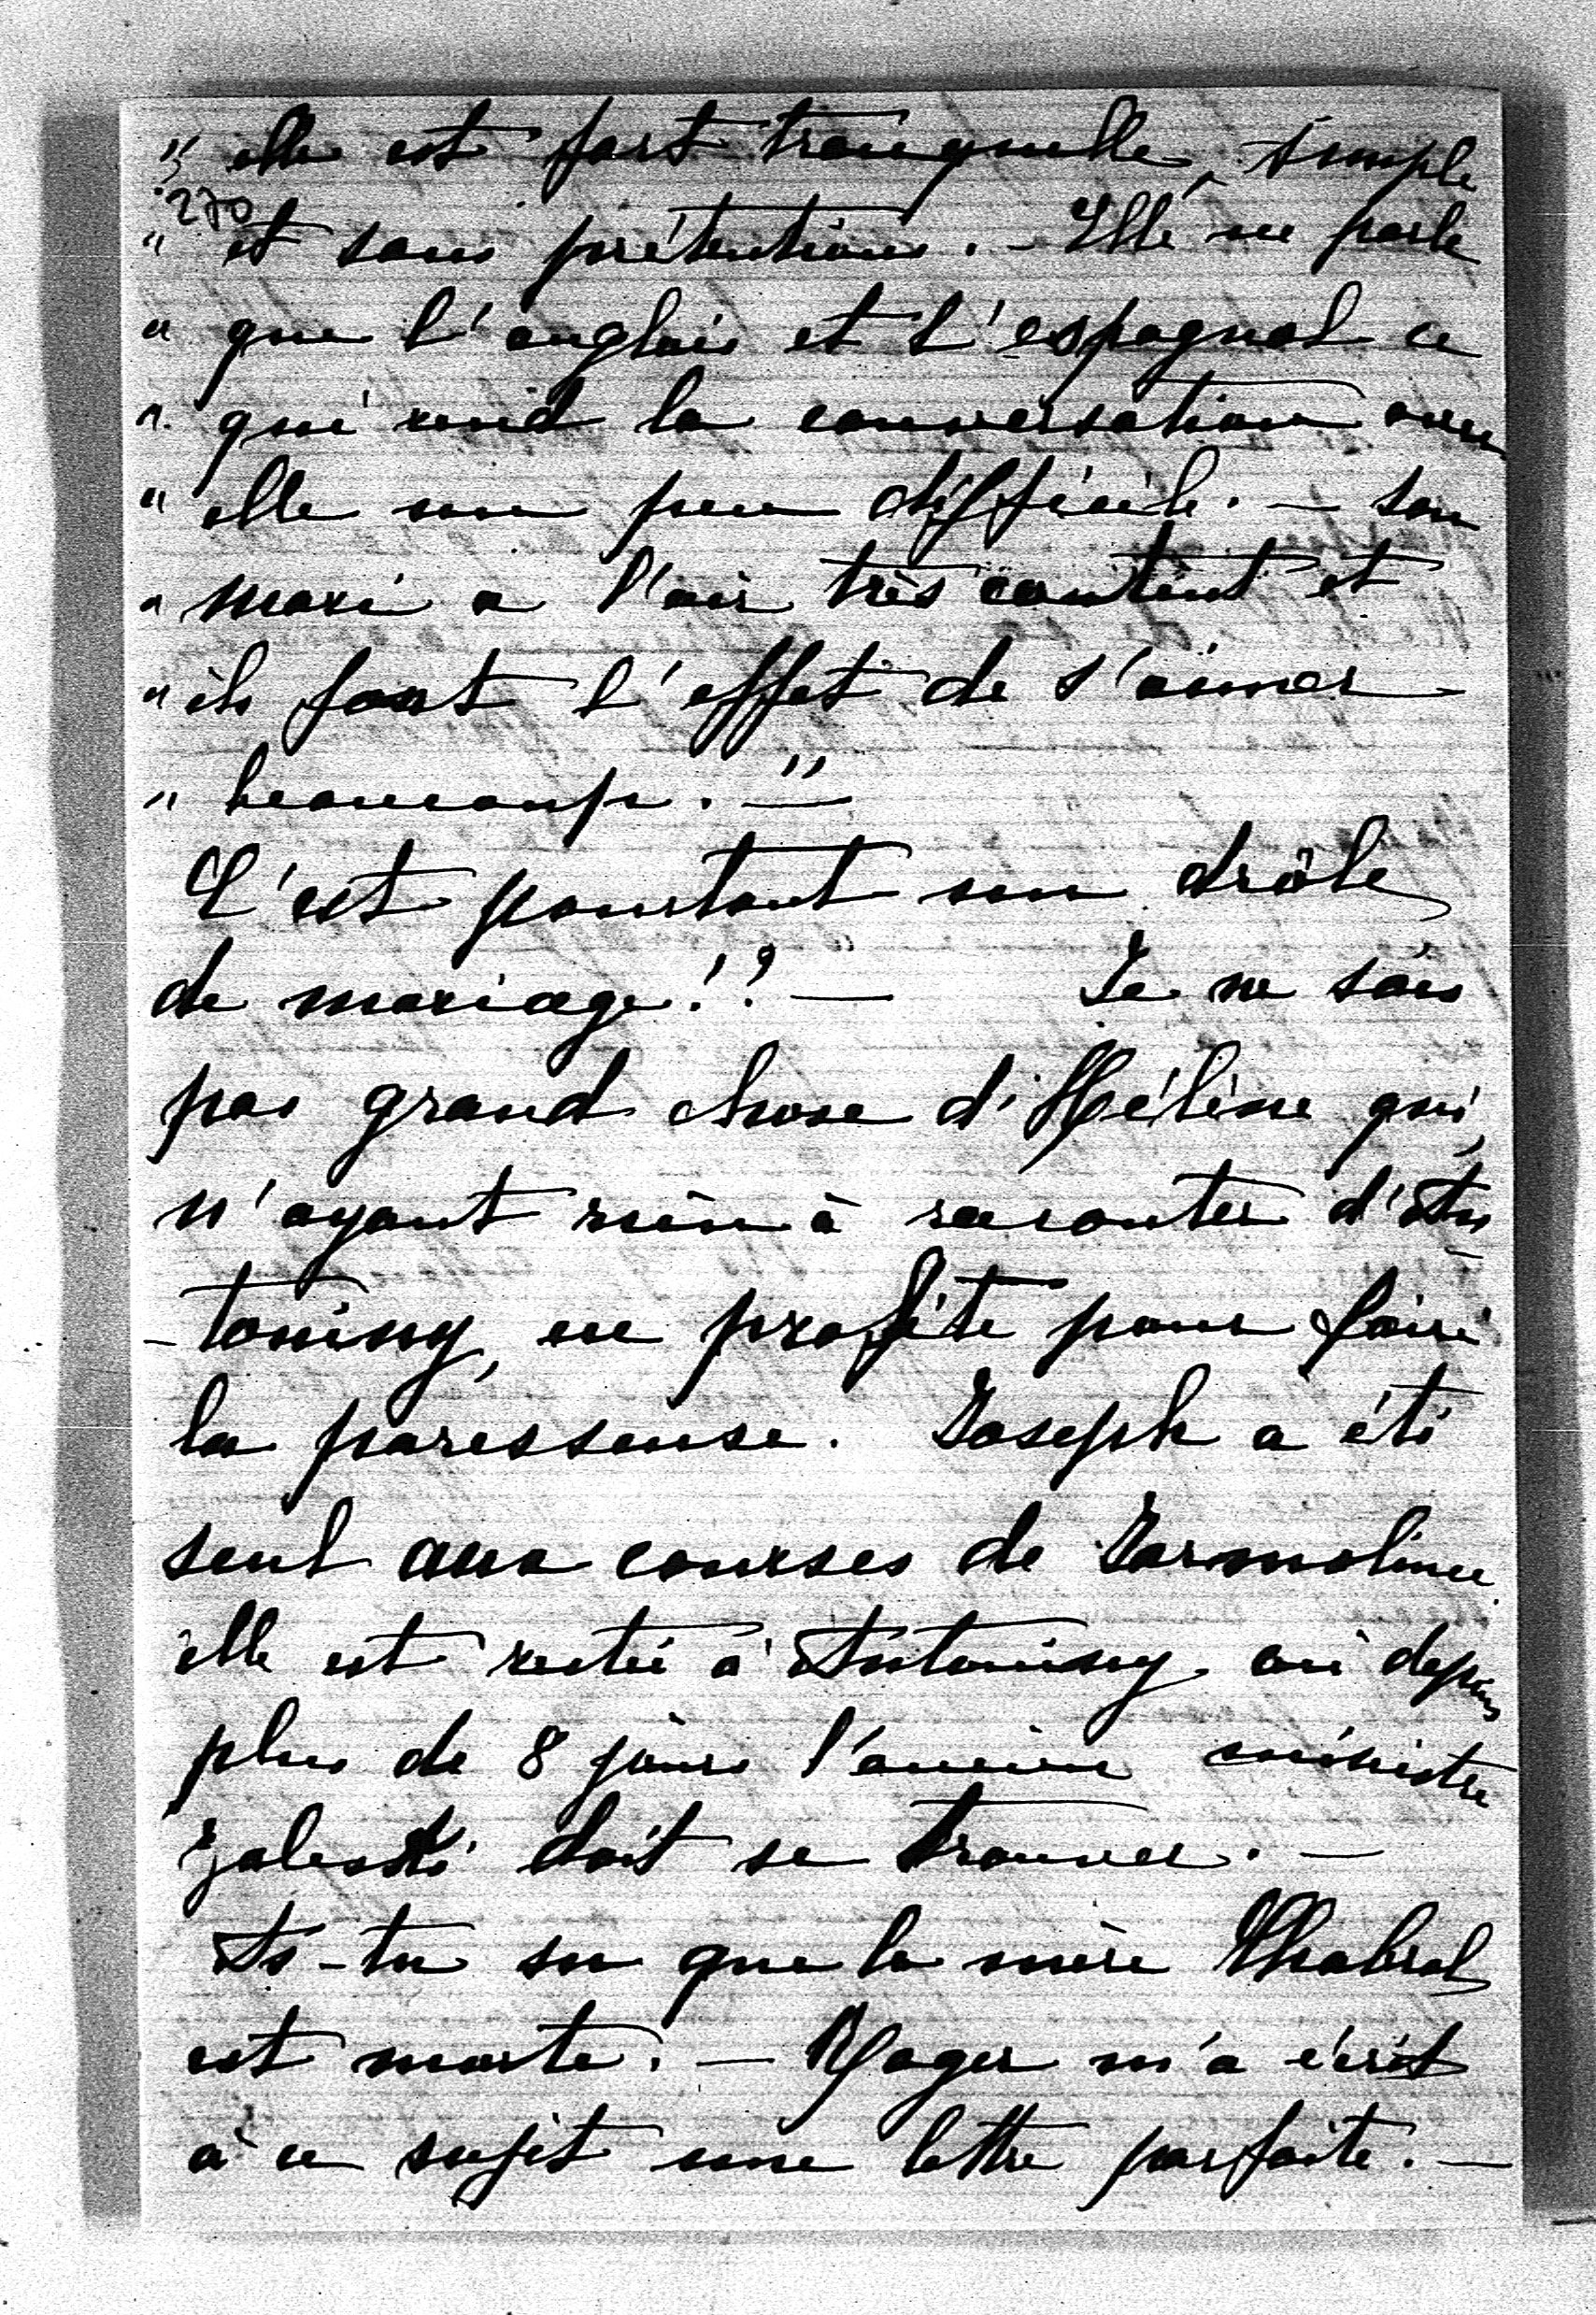 " elle est fort tranquille, simple
270
" et sans prétentions. – Elle ne parle
" que l'anglais et l'espagnol ce
" qui rend la conversation avec
" elle un peu difficile. – Son
" mari a l'air très content et
" ils font l'effet de s'aimer
" beaucoup. – "
C'est pourtant un drôle
de mariage!? – Je ne sais
pas grand chose d'Hélène qui,
n'ayant rien à raconter d'An
-toniny, en profite pour faire
la paresseuse. Joseph a été
seul aux courses de Jarmolince
elle est restée à Antoniny où depuis
plus de 8 jours l'ancien ministre
Zaleski doit se trouver. –
As-tu su que la mère Chabrol
est morte. – Mager m'a écrit
à ce sujet une lettre parfaite. –